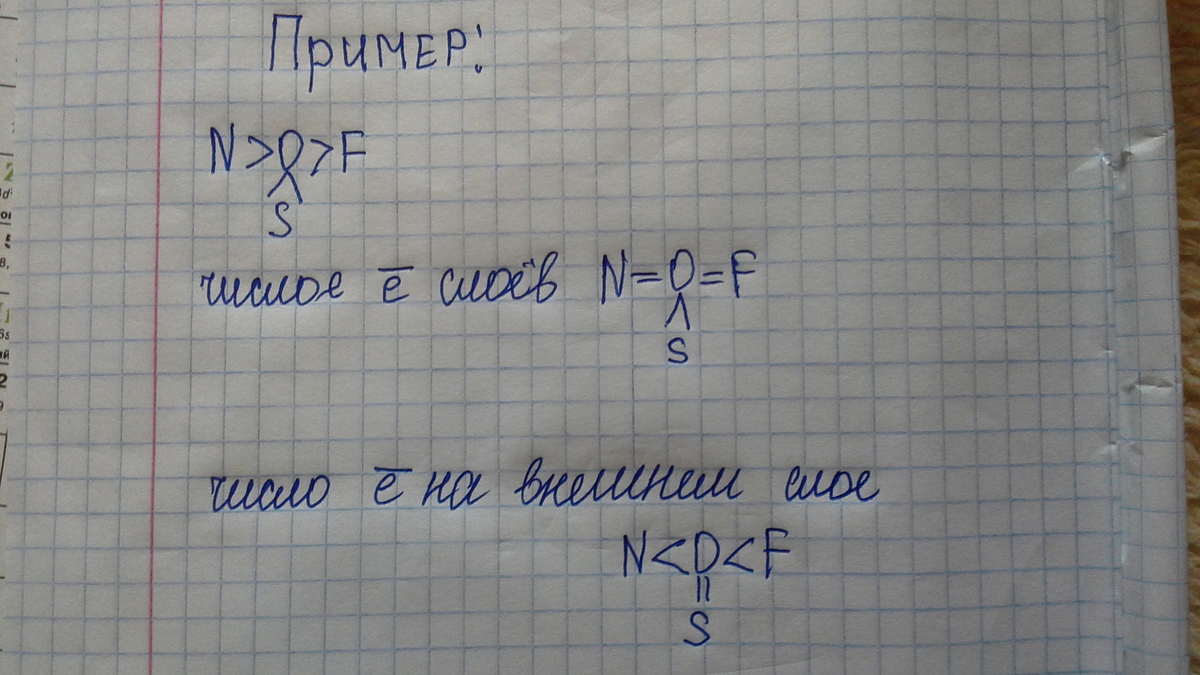 Пример:
N>O>F
^
S
числое ē слоёв N=O=F
^
S
число ē на внешнем слое
N<O<F
||
S